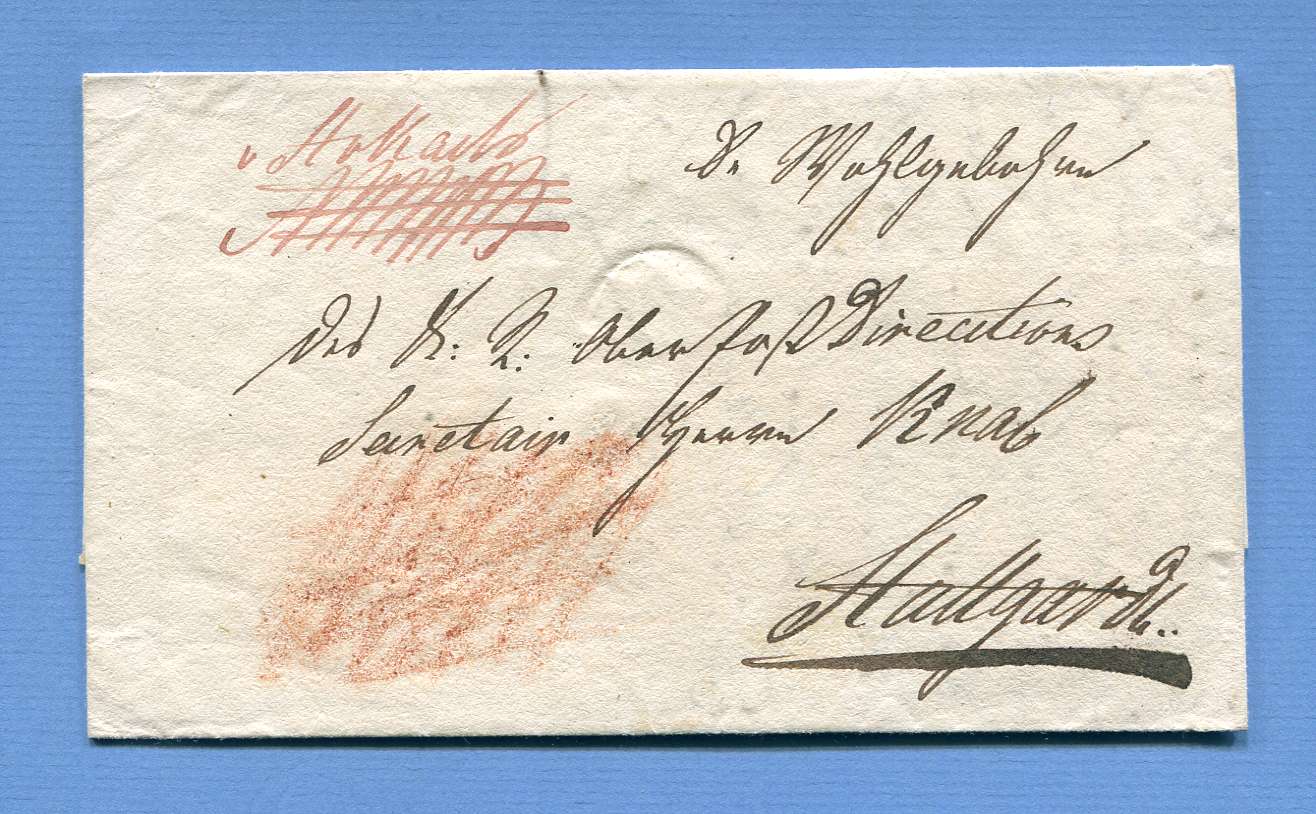 v Stokach
Sr Wohlgebohren
des K. K. Oberpost Directions
Secretair Herrn Knab
Stuttgardt..